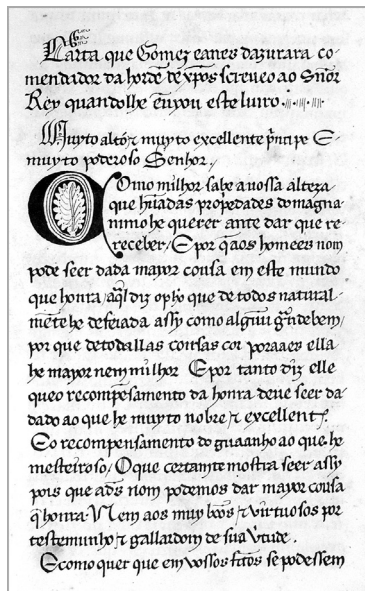 Carta que Gomez eanes dazurara co-
mendador da hordē de xp̄os screueo ao Snōr
Rey quando lhe enuyou este liuro
Muyto alto ⁊ muyto excellente p̃ncipe E
muyto poderoso Senhor,/
Como milhor sabe a uossa alteza
que hũa das propedades do magna
nimo he querer ante dar que re-
receber,/ E por q̃ aos homeẽs nom
pode seer dada mayor cousa em este mundo
que honra, aq̃l diz o pħo que de todos natural-
mēte he deseiada assy como alguũ grãde bem,/
por que de todallas cousas corporaaes ella
he mayor nem milhor E por tanto diz elle
que o recompensamento da honra deue seer da-
dado ao que he muyto nobre ⁊ excellent
E o recompensamento do guaanho ao que he
mesteiroso,/ O que certamte mostra seer assy
pois que a ds̄ nom podemos dar mayor cousa
q̃ honra. Nem aos muy boos,/ ⁊ virtuosos por
testemunho ⁊ gallardom de sua v̉tude.
E como quer que em vossos feitos se podessem